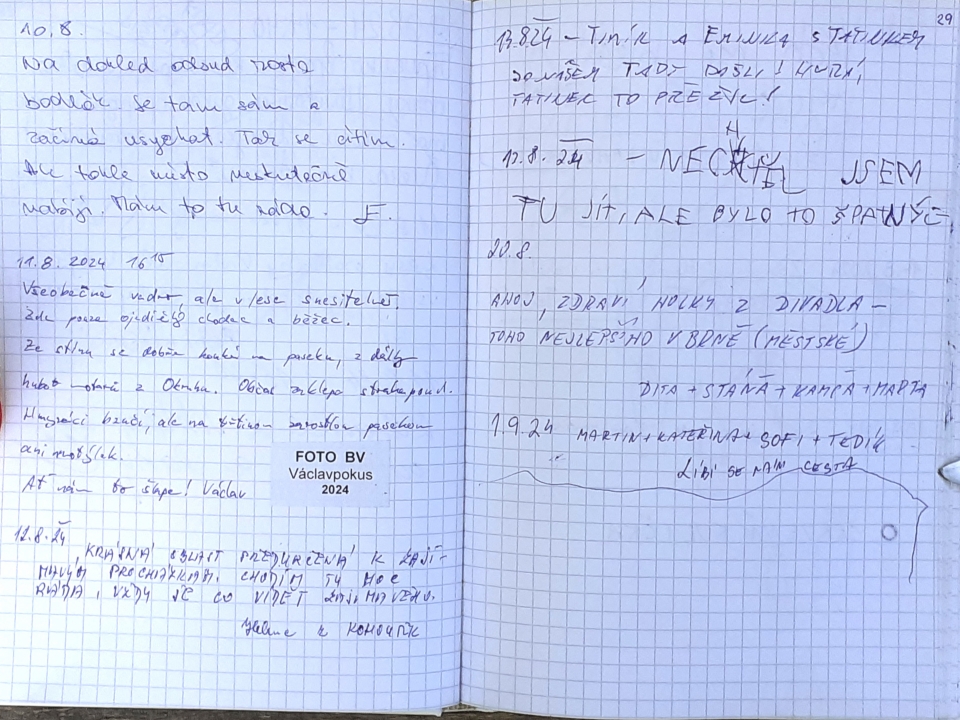 10.8.
Na dohled odsud roste
bodlák. Je tam sám a
začíná usychat. Tak se cítím.
Ale tohle místo neskutečně
nabíjí. Mám to tu ráda. E.
11.8.2024 16¹⁵
Všeobecně vedro, ale v lese snesitelně.
Zde pouze ojedinělý chodec a běžec.
Ze stínu se dobře kouká na paseku, z dálky
hukot motorů z Okruhu. Občas zaklepe strakapoud.
Hmyzáci bzučí, ale na zarostlou pasekou
ani motýlek.
Ať nám to šlape! Václav
FOTO BV
Václavpokus
2024
12.8.24
KRÁSNÁ OBLAST PŘEDURČENÁ K ZAJÍ-
MAVÝM PROCHÁZKÁM. CHODÍM TU MOC
RÁDA, VŽDY JE CO VIDĚT ZAJÍMAVÉHO.
29
13.8.24 - TINÍK A EMINKA S TATINKEM
DOŠLI! HURÁ,
TATINEK TO PŘEŽIL!
12.8.24 - NECHTĚL JSEM
TU JÍT, ALE BYLO TO ŠPATNÝ
20.8.
AHOJ, ZDRAVÍ HOLKY Z DIVADLA -
TOHO NEJLEPŠÍHO V BRNĚ (MĚSTSKÉ)
DITA + STÁŇA + KAMČA + MARTA
1.9.24 MARTIN + KATEŘINA + SOFI + TEDÍK
LÍBÍ SE NÁM CESTA